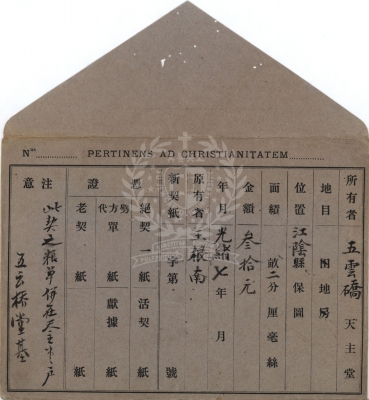 Nº
PERTINENS AD CHRISTIANITATEM
所有者 五雲橋 天主堂
地目 田地房
位置 江陰縣 保圖
面積 畝二分厘毫絲
金額 叁拾元
年月 光緒七年 月
原有者 王根南
新契紙 字第 號
憑證
絕契 一紙 活契 紙
代方單 紙 獻據 紙
老契 紙
注意 此契之粮單
五云橋堂基